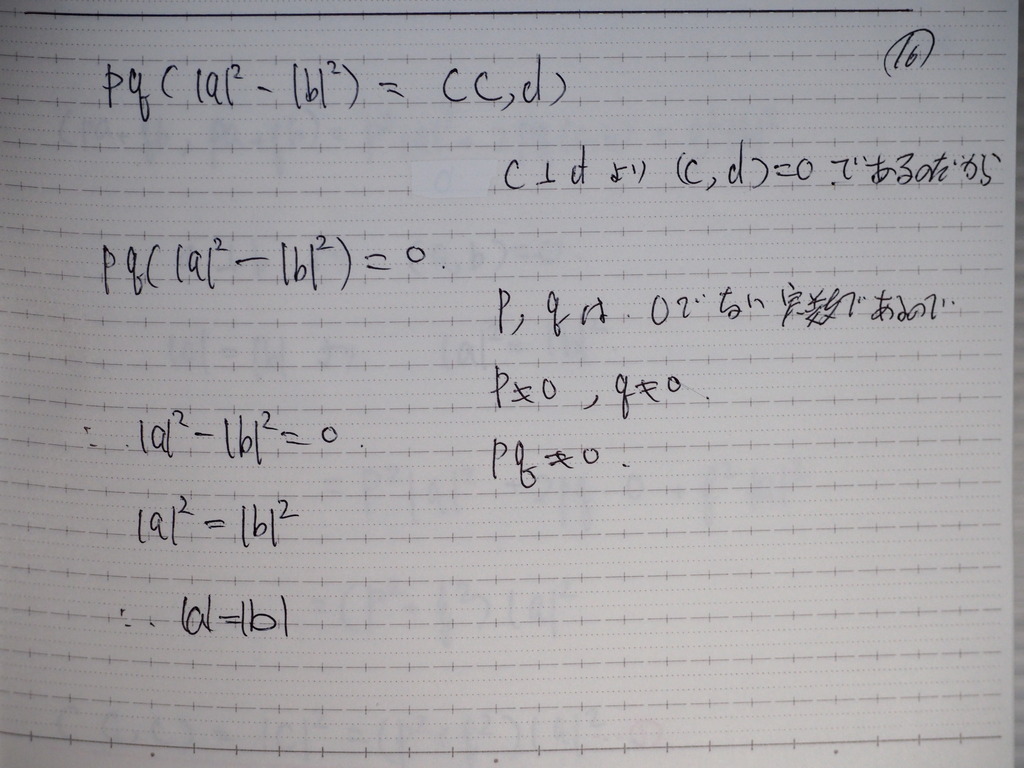 (16)
pq(|a|² - |b|²) = (c,d)
c⊥d より (c,d)=0 であるのだから
pq(|a|² - |b|²) = 0.
p, qは. 0でない定数であるので
p≠0 , q≠0.
∴ |a|² - |b|² = 0.
pq≠0.
|a|² = |b|²
∴ |a|=|b|